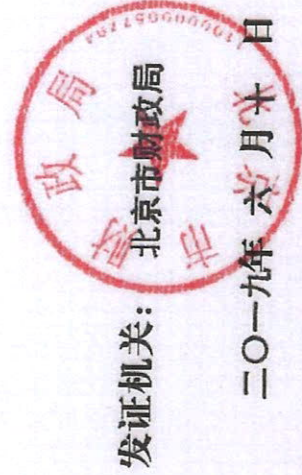 发证机关：北京市财政局
二〇一九年 六 月 十 日
北京市财政局